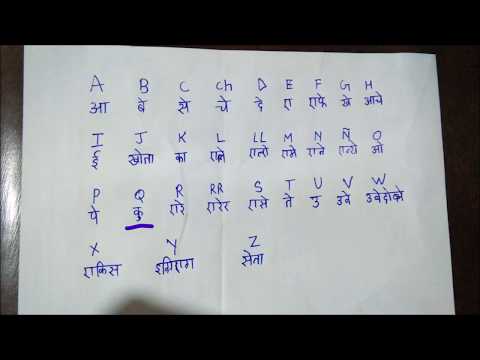 A B C Ch D E F G H
आ बे से चे दे ए एफे खे आचे
I J K L LL M N Ñ O
ई खोता का एले एल्ये एमे एने एन्ये ओ
P Q R RR S T U V W
पे कु एरे एरेर एसे ते उ उवे उवेदोब्ले
X Y Z
एकिस इग्रिएगा सेता